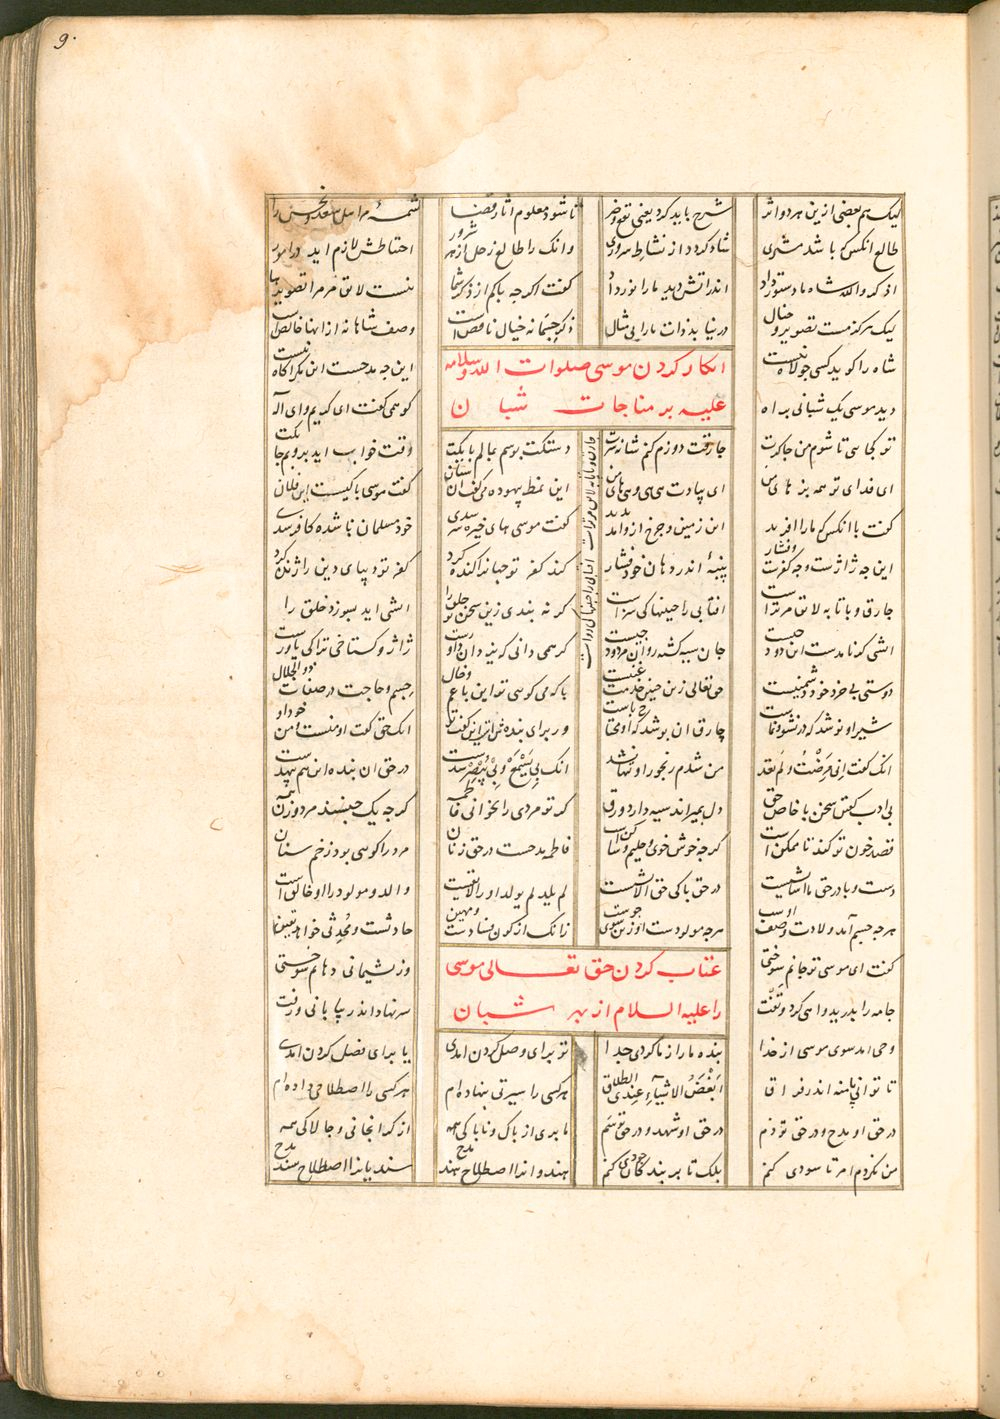 ۹۰
لیک هم بعضی ازین هر دو اثر شرح باید کرد یعنی نفع و ضر
تا شود معلوم آثار قضا شمهٔ مر اهل سعد و نحس را
طالع انکس که باشد مشتری شاد کردد از نشاط و سروری
وانک را طالع زحل از هر شرور احتیاطش لازم اید در امور
اذکروا الله شاه ما دستور داد اندر اتش دید ما را نور داد
کفت اکرچه پاکم از ذکر شما نیست لایق مر مرا تصویرها
لیک هرکز مست تصویر و خیال در نیابد ذات ما را بی مثال
ذکر جسمانه خیال ناقص است وصف شاهانه از انها خالص است
شاه را کوید کسی جولاه نیست این چه مدحست این مکر اکاه نیست
انکار کردن موسی صلوات الله وسلامه
علیه بر مناجات شبان
دید موسی یک شبانی براه کو همی کفت ای کریم و ای اله
تو کجایی تا شوم من چاکرت چارقت دوزم کنم شانه سرت
دستکت بوسم بمالم پایکت وقت خواب اید بروبم جایکت
ای فدای تو همه بزهای من ای بیادت هی هی و هی های من
این نمط بیهوده می کفت ان شبان کفت موسی با کیستت ای فلان
کفت با انکس که ما را افرید این زمین و چرخ ازو امد پدید
کفت موسی های خیره سر شدی خود مسلمان ناشده کافر شدی
این چه ژاژست و چه کفرست و فشار پنبهٔ اندر دهان خود فشار
کند کفر تو جهانرا کنده کرد کفر تو دیبای دین را ژنده کرد
چارق و پاتابه لایق مر تراست افتابی را چنینها کی سزاست
کر نه بندی زین سخن تو حلق را اتشی اید بسوزد خلق را
اتشی کر نامدست این دود چیست جان سیه کشته روان مردود چیست
کر همی دانی که یزدان داورست ژاژ و کستاخی ترا کی باورست
دوستی بی خرد خود دشمنیست حق تعالی زین چنین خدمت غنیست
با که می کویی تو این با عم و خال جسم و حاجت در صفات ذو الجلال
شیر او نوشد که در نشو و نماست چارق ان پوشد که او محتاج پاست
ور برای بنده ش است این کفت تو انک حق کفت او منست و من خود او
انک کفت انی مرضت و لم تعد من شدم رنجور او تنها نشد
انک بی یسمع و بی یبصر شدست در حق ان بنده این هم بیهدست
بی ادب کفتن سخن با خاص حق دل بمیراند سیه دارد ورق
کر تو مردی را بخوانی فاطمه کرچه یک جنسند مرد و زن همه
قصد خون تو کند تا ممکن است کرچه خوش خوی و حلیم و ساکن است
فاطمه مدحست در حق زنان مرد را کویی بود زخم سنان
دست و پا در حق ما استایشیست در حق پاکی حق الایشست
لم یلد لم یولد او را لایقست والد و مولود را او خالق است
هرچه جسم آمد ولادت وصف اوست هرچه مولودست او زین سوی جوست
زانک از کون و فسادست و مهین حادثست و محدثی خواهد یقین
کفت ای موسی تو جانم سوختی وز پشیمانی دهانم سوختی
عتاب کردن حق تعالی موسی
را علیه السلام از بهر شبان
جامه را بدرید و اهی کرد و تفت سر نهاد اندر بیابانی و رفت
وحی امد سوی موسی از خدا بنده ما را ز ما کردی جدا
تو برای وصل کردن امدی یا برای فصل کردن امدی
تا توانی پا منه اندر فراق ابغض الاشیاء عندی الطلاق
هر کسی را سیرتی بنهاده ام هر کسی را اصطلاحی داده ام
در حق او مدح و در حق تو ذم در حق او شهد و در حق تو سم
ما بری از پاک و ناپاکی همه از کرانجانی و چالاکی همه
من نکردم امر تا سودی کنم بلک تا بر بندکان جودی کنم
هندوانرا اصطلاح هند مدح سندیانرا اصطلاح سند مدح